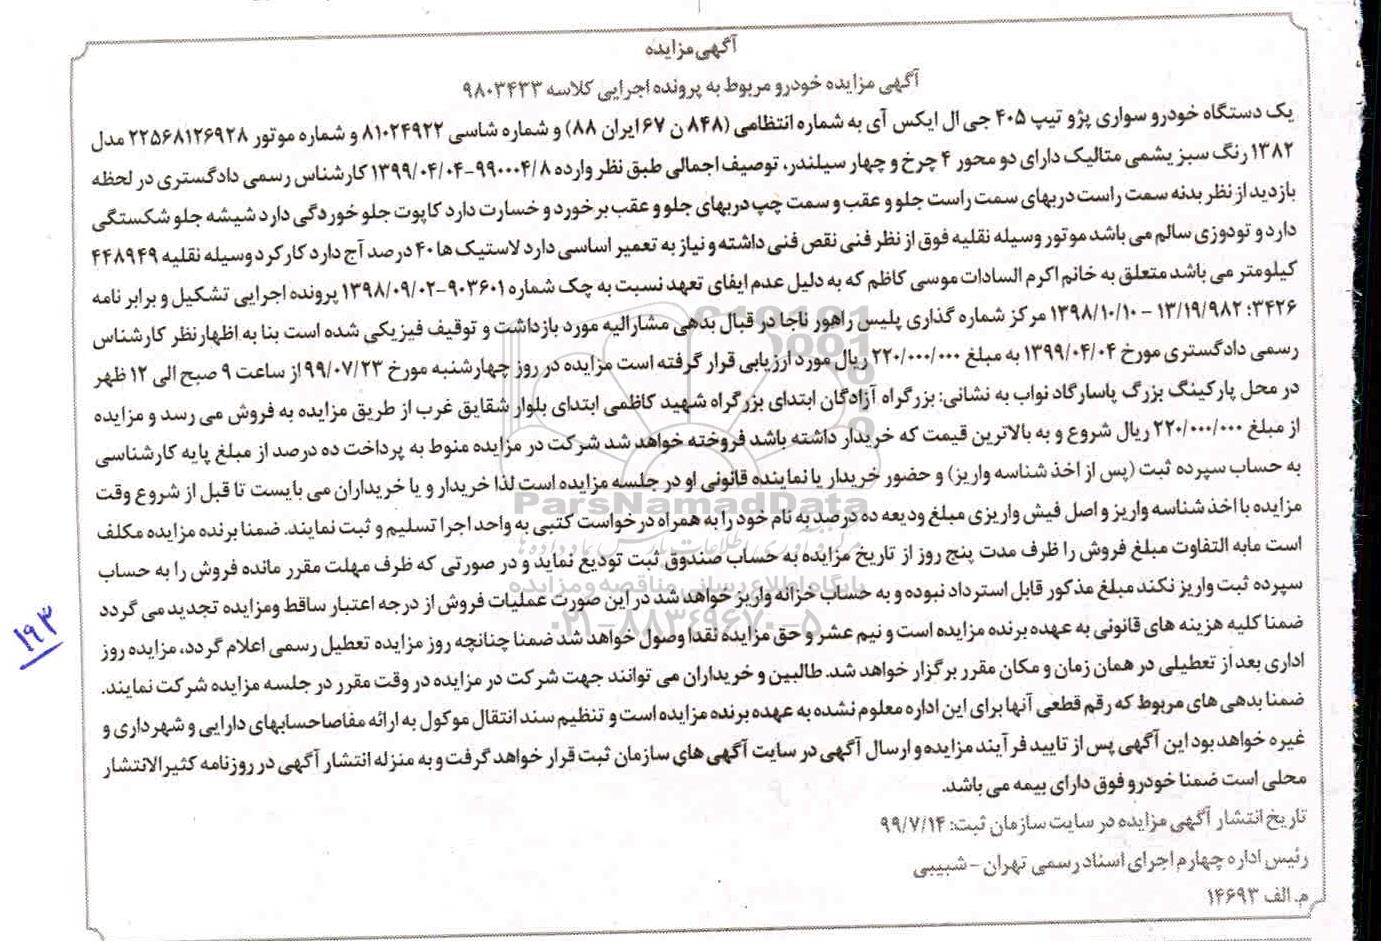 آگهی مزایده
آگهی مزایده خودرو مربوط به پرونده اجرایی کلاسه ۹۸۰۳۴۳۳
یک دستگاه خودرو سواری پژو تیپ ۴۰۵ جی ال ایکس آی به شماره انتظامی (۸۴۸ ن ۶۷ ایران ۸۸) و شماره شاسی ۸۱۰۲۴۹۲۲ و شماره موتور ۲۲۵۶۸۱۲۶۹۲۸ مدل
۱۳۸۲ رنگ سبز یشمی متالیک دارای دو محور ۴ چرخ و چهار سیلندر، توصیف اجمالی طبق نظر وارده ۹۹۰۰۰۴/۸-۱۳۹۹/۰۴/۰۴ کارشناس رسمی دادگستری در لحظه
بازدید از نظر بدنه سمت راست دربهای سمت راست جلو و عقب و سمت چپ دربهای جلو و عقب برخورد و خسارت دارد کاپوت جلو خوردگی دارد شیشه جلو شکستگی
دارد و تودوزی سالم می باشد موتور وسیله نقلیه فوق از نظر فنی نقص فنی داشته و نیاز به تعمیر اساسی دارد لاستیک ها ۴۰ درصد آج دارد کارکرد وسیله نقلیه ۴۴۸۹۴۹
کیلومتر می باشد متعلق به خانم اکرم السادات موسی کاظم که به دلیل عدم ایفای تعهد نسبت به چک شماره ۹۰۳۶۰۱-۱۳۹۸/۰۹/۰۲ پرونده اجرایی تشکیل و برابر نامه
۳۴۲۶: ۱۳/۱۹/۹۸۲ - ۱۳۹۸/۱۰/۱۰ مرکز شماره گذاری پلیس راهور ناجا در قبال بدهی مشارالیه مورد بازداشت و توقیف فیزیکی شده است بنا به اظهارنظر کارشناس
رسمی دادگستری مورخ ۱۳۹۹/۰۴/۰۴ به مبلغ ۲۲۰/۰۰۰/۰۰۰ ریال مورد ارزیابی قرار گرفته است مزایده در روز چهارشنبه مورخ ۹۹/۰۷/۲۳ از ساعت ۹ صبح الی ۱۲ ظهر
در محل پارکینگ بزرگ پاسارگاد نواب به نشانی: بزرگراه آزادگان ابتدای بزرگراه شهید کاظمی ابتدای بلوار شقایق غرب از طریق مزایده به فروش می رسد و مزایده
از مبلغ ۲۲۰/۰۰۰/۰۰۰ ریال شروع و به بالاترین قیمت که خریدار داشته باشد فروخته خواهد شد شرکت در مزایده منوط به پرداخت ده درصد از مبلغ پایه کارشناسی
به حساب سپرده ثبت (پس از اخذ شناسه واریز) و حضور خریدار یا نماینده قانونی او در جلسه مزایده است لذا خریدار و یا خریداران می بایست تا قبل از شروع وقت
مزایده با اخذ شناسه واریز و اصل فیش واریزی مبلغ ودیعه ده درصد به نام خود را به همراه درخواست کتبی به واحد اجرا تسلیم و ثبت نمایند. ضمنا برنده مزایده مکلف
است مابه التفاوت مبلغ فروش را ظرف مدت پنج روز از تاریخ مزایده به حساب صندوق ثبت تودیع نماید و در صورتی که ظرف مهلت مقرر مانده فروش را به حساب
سپرده ثبت واریز نکند مبلغ مذکور قابل استرداد نبوده و به حساب خزانه واریز خواهد شد در این صورت عملیات فروش از درجه اعتبار ساقط ومزایده تجدید می گردد
ضمنا کلیه هزینه های قانونی به عهده برنده مزایده است و نیم عشر و حق مزایده نقدا وصول خواهد شد ضمنا چنانچه روز مزایده تعطیل رسمی اعلام گردد، مزایده روز
اداری بعد از تعطیلی در همان زمان و مکان مقرر برگزار خواهد شد. طالبین و خریداران می توانند جهت شرکت در مزایده در وقت مقرر در جلسه مزایده شرکت نمایند.
ضمنا بدهی های مربوط که رقم قطعی آنها برای این اداره معلوم نشده به عهده برنده مزایده است و تنظیم سند انتقال موکول به ارائه مفاصاحسابهای دارایی و شهرداری و
غیره خواهد بود این آگهی پس از تایید فرآیند مزایده و ارسال آگهی در سایت آگهی های سازمان ثبت قرار خواهد گرفت و به منزله انتشار آگهی در روزنامه کثیرالانتشار
محلی است ضمنا خودرو فوق دارای بیمه می باشد.
تاریخ انتشار آگهی مزایده در سایت سازمان ثبت: ۹۹/۷/۱۴
رئیس اداره چهارم اجرای اسناد رسمی تهران - شبیبی
م. الف ۱۴۶۹۳
۱۹۳
ParsNamadData
پایگاه اطلاع رسانی مناقصه و مزایده
۰۲۱-۸۸۳۴۹۶۷۰-۵